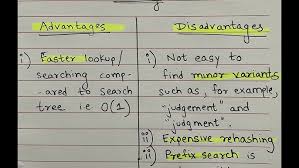 Advantages
i) Faster lookup/
searching comp-
ared to search
tree i.e O(1)
Disadvantages
i) Not easy to
find minor variants
such as, for example,
"judgement" and
"judgment".
ii) Expensive rehashing
iii) Prefix search is